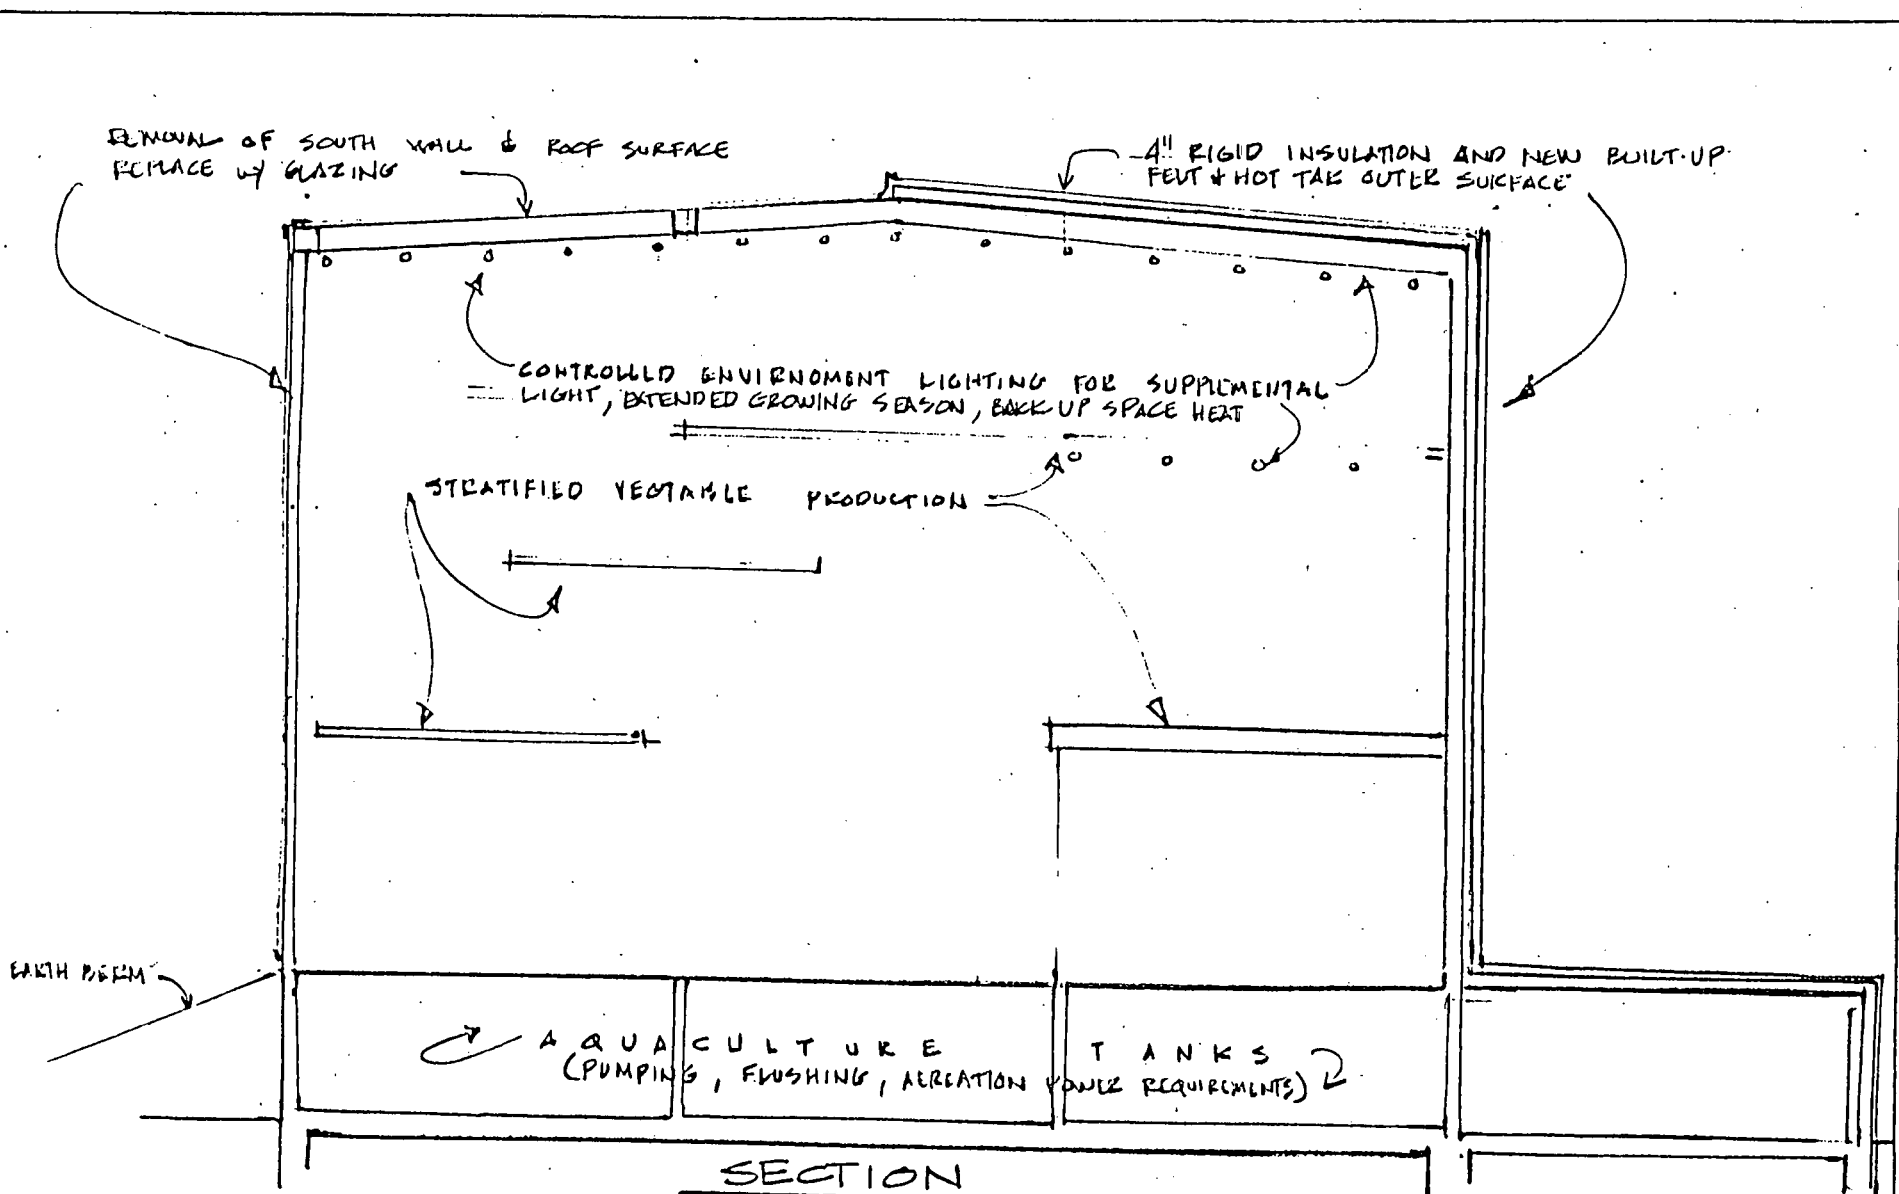 REMOVAL OF SOUTH WALL & ROOF SURFACE
REPLACE W/ GLAZING
4" RIGID INSULATION AND NEW BUILT-UP
FELT & HOT TAR OUTER SURFACE
CONTROLLED ENVIRNOMENT LIGHTING FOR SUPPLEMENTAL
LIGHT, EXTENDED GROWING SEASON, BACK-UP SPACE HEAT
STRATIFIED VEGTABLE PRODUCTION
EARTH BERM
AQUACULTURE TANKS
(PUMPING, FLUSHING, AEREATION POWER REQUIREMENTS)
SECTION